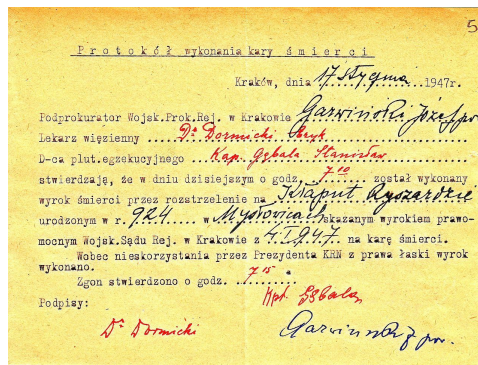 5
Protokół wykonania kary śmierci
Kraków, dnia 17 stycznia 1947r.
Podprokurator Wojsk.Prok.Rej. w Krakowie Garwiński Józef por
Lekarz więzienny ...Dr Dormicki Eryk
D-ca plut.egzekucyjnego ...Kap. Gębala Stanisław
stwierdzają, że w dniu dzisiejszym o godz. 7 10 został wykonany
wyrok śmierci przez rozstrzelenie na Kłaput Ryszardzie
urodzonym w r. 924 w Mysłowicach skazanym wyrokiem prawo-
mocnym Wojsk.Sądu Rej. w Krakowie z 4.I.947. na karę śmierci.
Wobec nieskorzystania przez Prezydenta KRN z prawa łaski wyrok
wykonano.
Zgon stwierdzono o godz. 7 15
Podpisy:
Kpt. Gębala
Dr Dormicki
Garwiński J por.